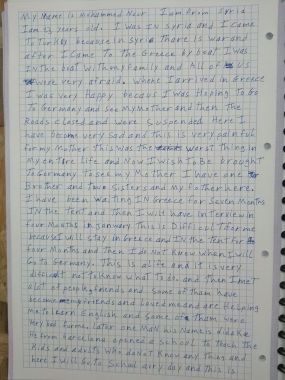 My Name is Mohammed Nour I am from Syria
I am 13 years old. I was IN Syria and I came
To Turkey because in Syria There is war and
after I came To the Greece by boat I was
IN the boat with my family and All of us
were very afraid. Where I arrived in Greece
I was very happy becaus I was Hoping To Go
To Germany and see My Mother and then the
Roads closed and were suspended Here I
have become very Sad and this is very painful
for my Mother This was the worst thing in
My entore Life and Now I wish To Be brought
To Germany to see my Mother I have one
Brother and Two Sisters and My Father here.
I have been waiting IN Greece for Seven Months
IN the Tent and then I will have Interview in
four Months in January This is Difficult for me
because I will stay in Greece and IN the Tent for
four Months and Then I do Not Know when I will
Go to Germany. This is Life and it is very
difficult not to know what To do and Then I met
alot of people, friends and some of them have
become my friends and loved me and are Helping
me to learn English and some of them were
Very bad for me. Later one Man his Name is
He from Barcelona opened a school to teach the
Kids and adults who do Not Know any thing and
here I will Go to School every day and This is